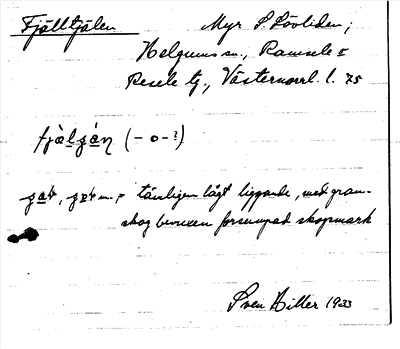 Fjälltjälen Myr S. Lövliden;
Helgums sn., Ramsele o
Resele tg., Västernorrl. l. 75
fjäl (-o-?)
m. = tämligen lågt liggande, med gran-
skog bevuxen försumpad skogsmark
Sven Hiller 1933